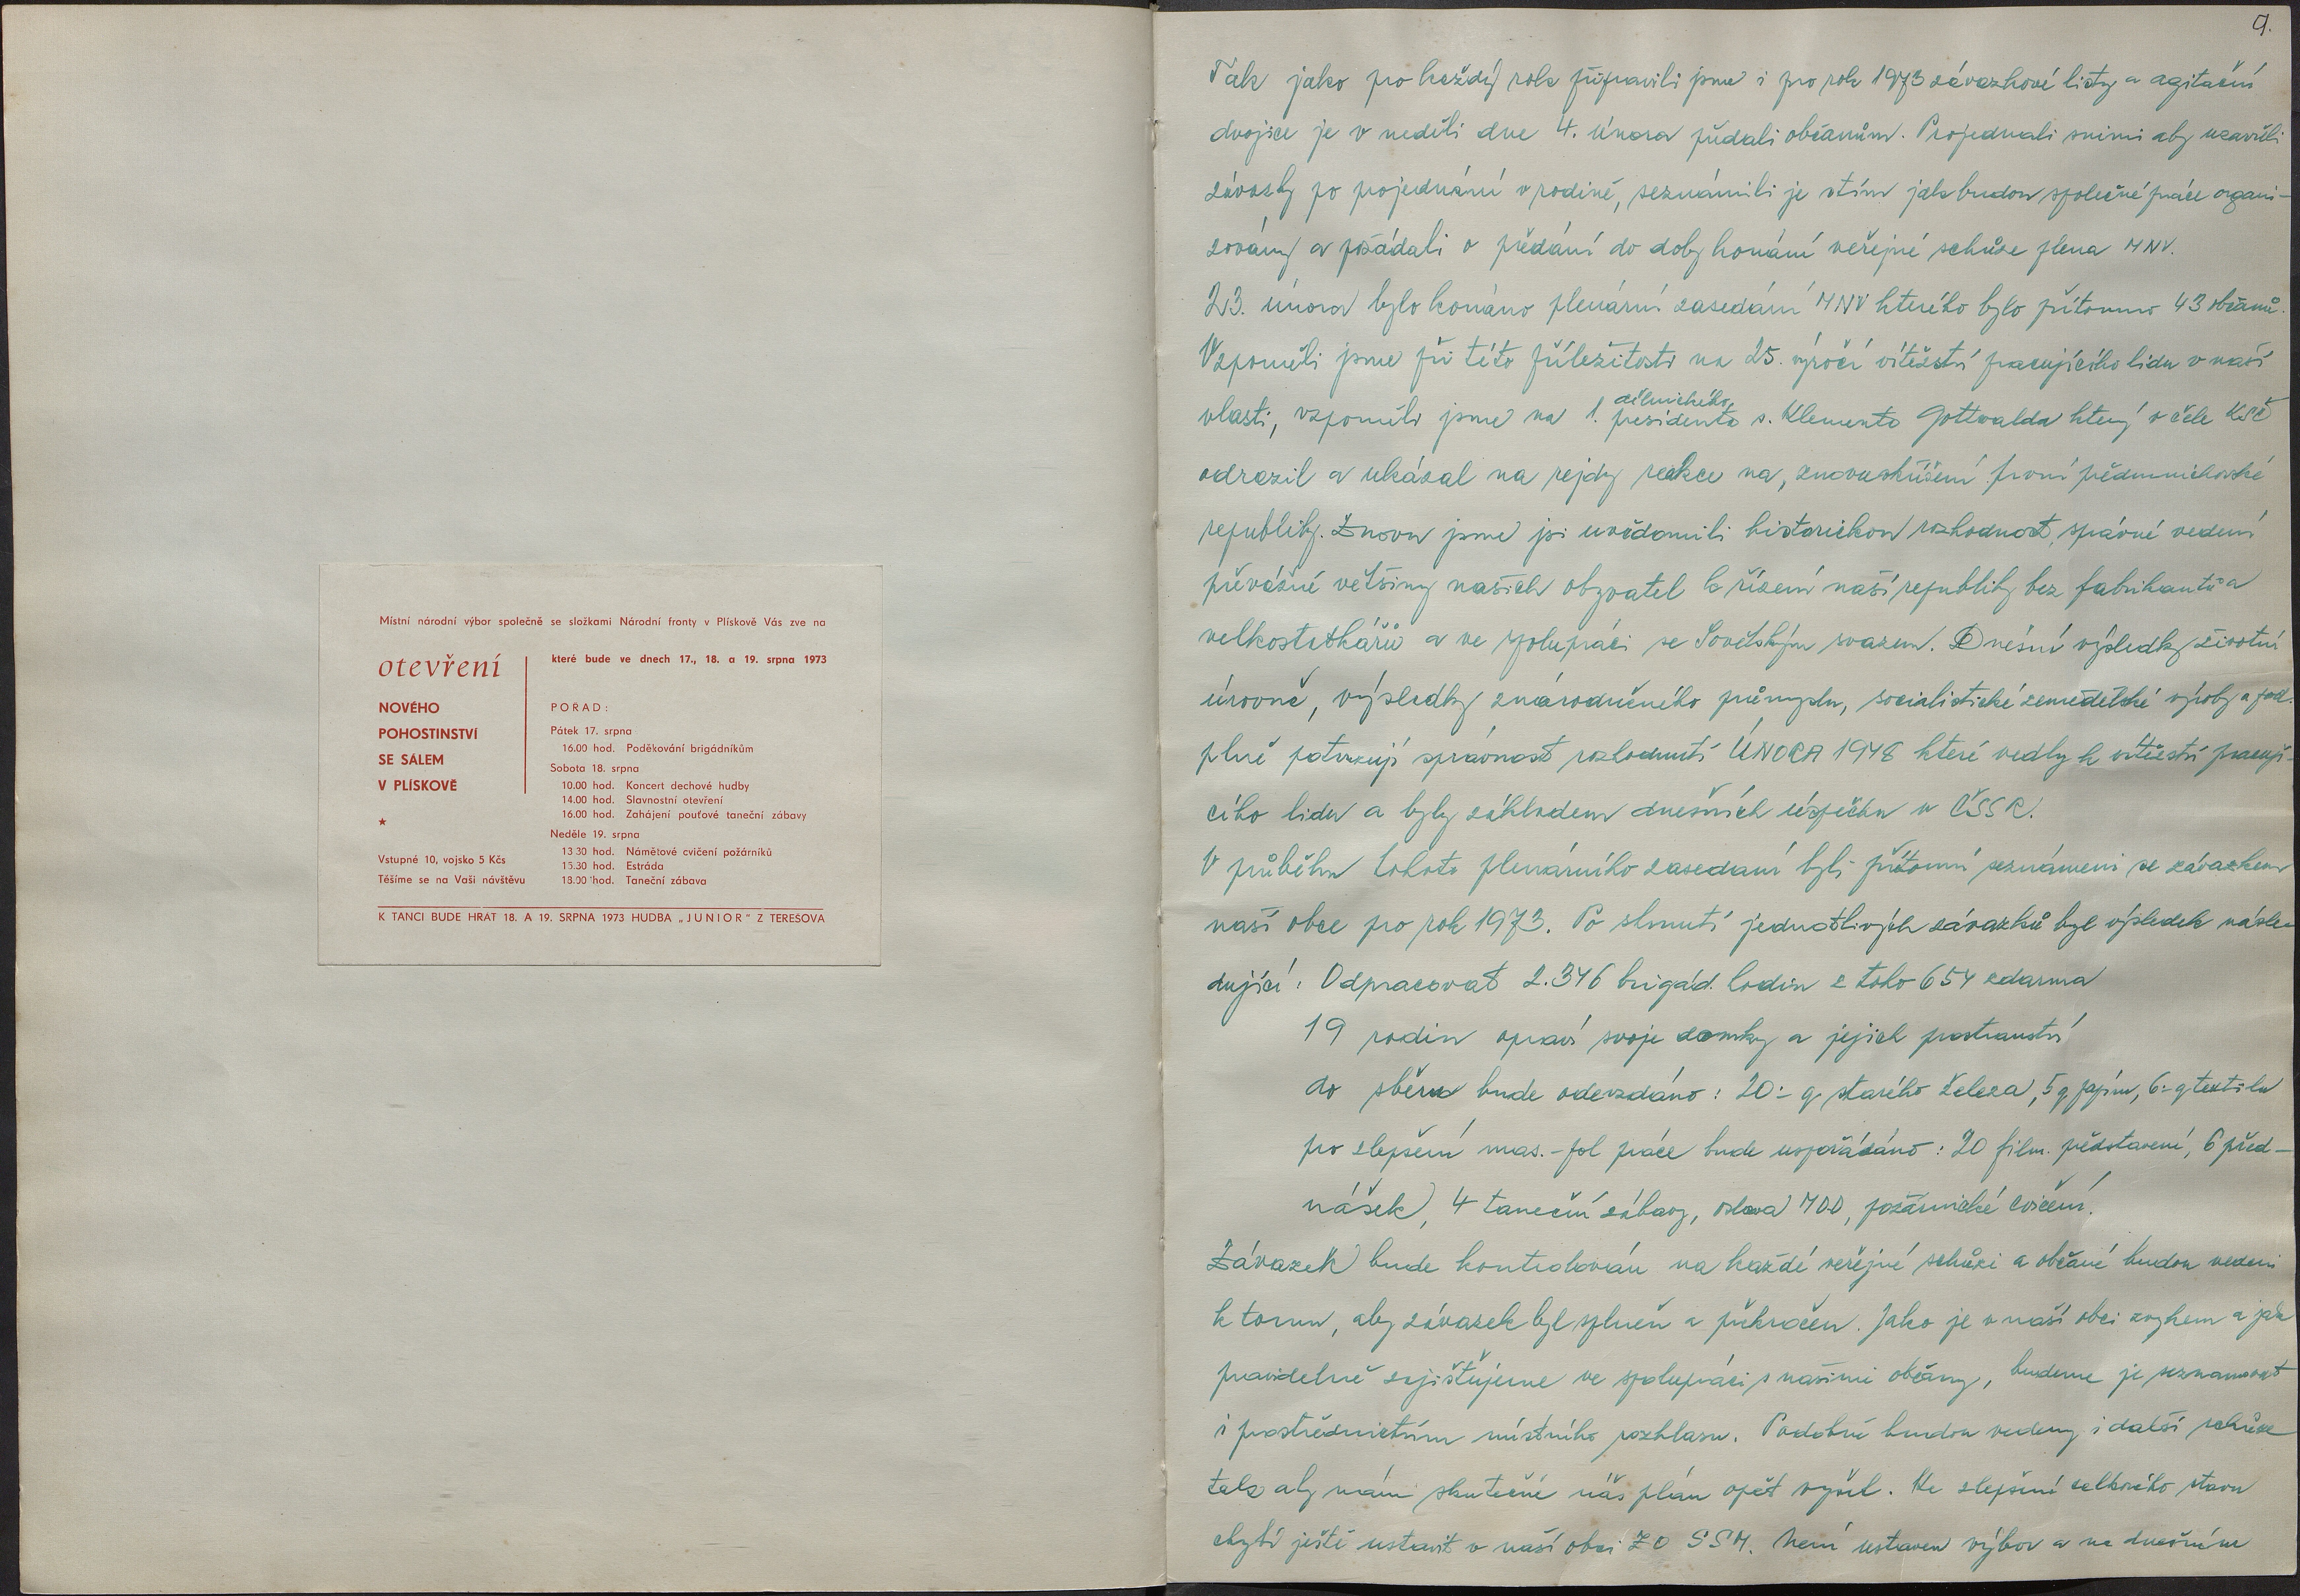 Místní národní výbor společně se složkami Národní fronty v Plískově Vás zve na
otevření
NOVÉHO
POHOSTINSTVÍ
SE SÁLEM
V PLÍSKOVĚ
★
Vstupné 10, vojsko 5 Kčs
Těšíme se na Vaši návštěvu
které bude ve dnech 17., 18. a 19. srpna 1973
PORAD:
Pátek 17. srpna
16.00 hod. Poděkování brigádníkům
Sobota 18. srpna
10.00 hod. Koncert dechové hudby
14.00 hod. Slavnostní otevření
16.00 hod. Zahájení pouťové taneční zábavy
Neděle 19. srpna
13 30 hod. Námětové cvičení požárníků
15.30 hod. Estráda
18.00 hod. Taneční zábava
K TANCI BUDE HRÁT 18. A 19. SRPNA 1973 HUDBA „JUNIOR" Z TEREŠOVA
9.
Tak jako pro každý rok připravili jsme i pro rok 1973 závazkové listy a agitační
dvojice je v neděli dne 4. února předali občanům. Projednali snimi aby uzavřeli
závazky po projednání v rodině, seznámili je stím jak budou společné práce organi-
zovány a požádali o předání do doby konání veřejné schůze plena MNV.
23. února bylo konáno plenární zasedání MNV kterého bylo přítomno 43 občanů.
Vzpoměli jsme při této příležitosti na 25. výročí vítězství pracujícího lidu v naší
vlasti, vzpoměli jsme na 1. dělnického presidenta s. Klementa Gottwalda který v čele KSČ
odrazil a ukázal na rejdy reakce na, znovuskříšení první předmnichovské
republiky. Znovu jsme jsi uvědomili historickou rozhodnost, správné vedení
převážné většiny našich obyvatel k řízení naší republiky bez fabrikantů a
velkostatkářů a ve spolupráci se Sovětským svazem. Dnešní výsledky životní
úrovně, výsledky znárodněného průmyslu, socialistické zemědělské výroby a pod.
plně potvrzují správnost rozhodnutí ÚNORA 1948 které vedly k vítězství pracují-
cího lidu a byly základem dnešních úspěchu v ČSSR.
V průběhu tohoto plenárního zasedaní byli přítomní seznámeni se závazkem
naší obce pro rok 1973. Po shrnutí jednotlivých závazků byl výsledek násle-
dující: Odpracovat 2.346 brigád. hodin z toho 654 zdarma
19 rodin opraví svoje domky a jejich prostranství
do sběru bude odevzdáno: 20 q starého železa, 5 q papíru, 6 q textilu
pro zlepšení mas.-pol práce bude uspořádáno: 20 film. představení, 6 před-
nášek, 4 taneční zábavy, oslava MDD, požárnické cvičení.
Závazek bude kontrolován na každé veřejné schůzi a občané budou vedeni
k tomu, aby závazek byl splněn a překročen. Jako je v naší obci zvykem a jak
pravidelně zajišťujeme ve spolupráci s našimi občany, budeme je seznamovat
i prostřednictvím místního rozhlasu. Podobně budou vedeny i další schůze
tak aby nám skutečně náš plán opět vyšel. Ke zlepšení celkového stavu
chybí ještě ustavit v naší obci ZO SSM. Není ustaven výbor a na dnešním